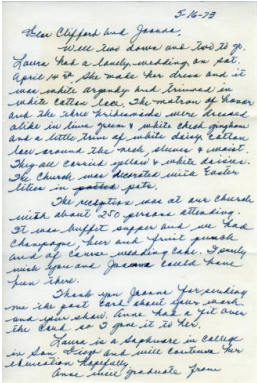 5-16-73
Dear Clifford and Joanna,
Well two down and two to go.
Laura had a lovely wedding on Sat.
April 14th She made her dress and it
was white organdy and trimmed in
white cotton lace. The matron of honor
and the three bridesmaids were dressed
alike in lime green & white check gingham
and a little trim of white daisy cotton
lace around the neck, sleeves & waist.
They all carried yellow & white daisies.
The Church was decorated with Easter
lilies in pots.
The reception was at our church
with about 250 persons attending.
It was buffet supper and we had
champagne, beer and fruit punch
and of course wedding cake. I surely
wish you and Joanna could have
been there.
Thank you Joanna for sending
me the post card about your work
and your show. Anne had a fit over
the card so I gave it to her.
Laura is a sophmore in college
in San Diego and will continue her
education hopefully.
Anne will graduate from